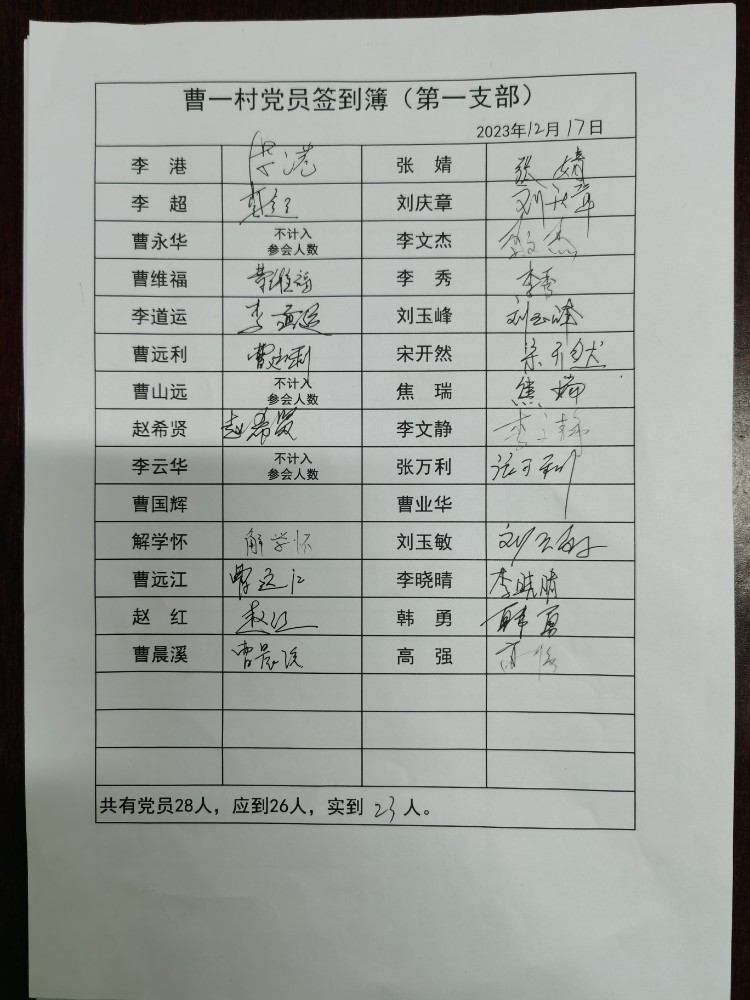 曹一村党员签到簿（第一支部）
2023年12月17日
李 港 李港 张 婧 张婧
李 超 李超 刘庆章 刘庆章
曹永华 不计入 李文杰 李文杰
参会人数
曹维福 曹维福 李 秀 李秀
李道运 李道运 刘玉峰 刘玉峰
曹远利 曹远利 宋开然 宋开然
曹山远 不计入 焦 瑞 焦瑞
参会人数
赵希贤 赵希贤 李文静 李文静
李云华 不计入 张万利 张万利
参会人数
曹国辉 曹业华
解学怀 解学怀 刘玉敏 刘玉敏
曹远江 曹远江 李晓晴 李晓晴
赵 红 赵红 韩 勇 韩勇
曹晨溪 曹晨溪 高 强 高强
共有党员28人，应到26人，实到 23 人。